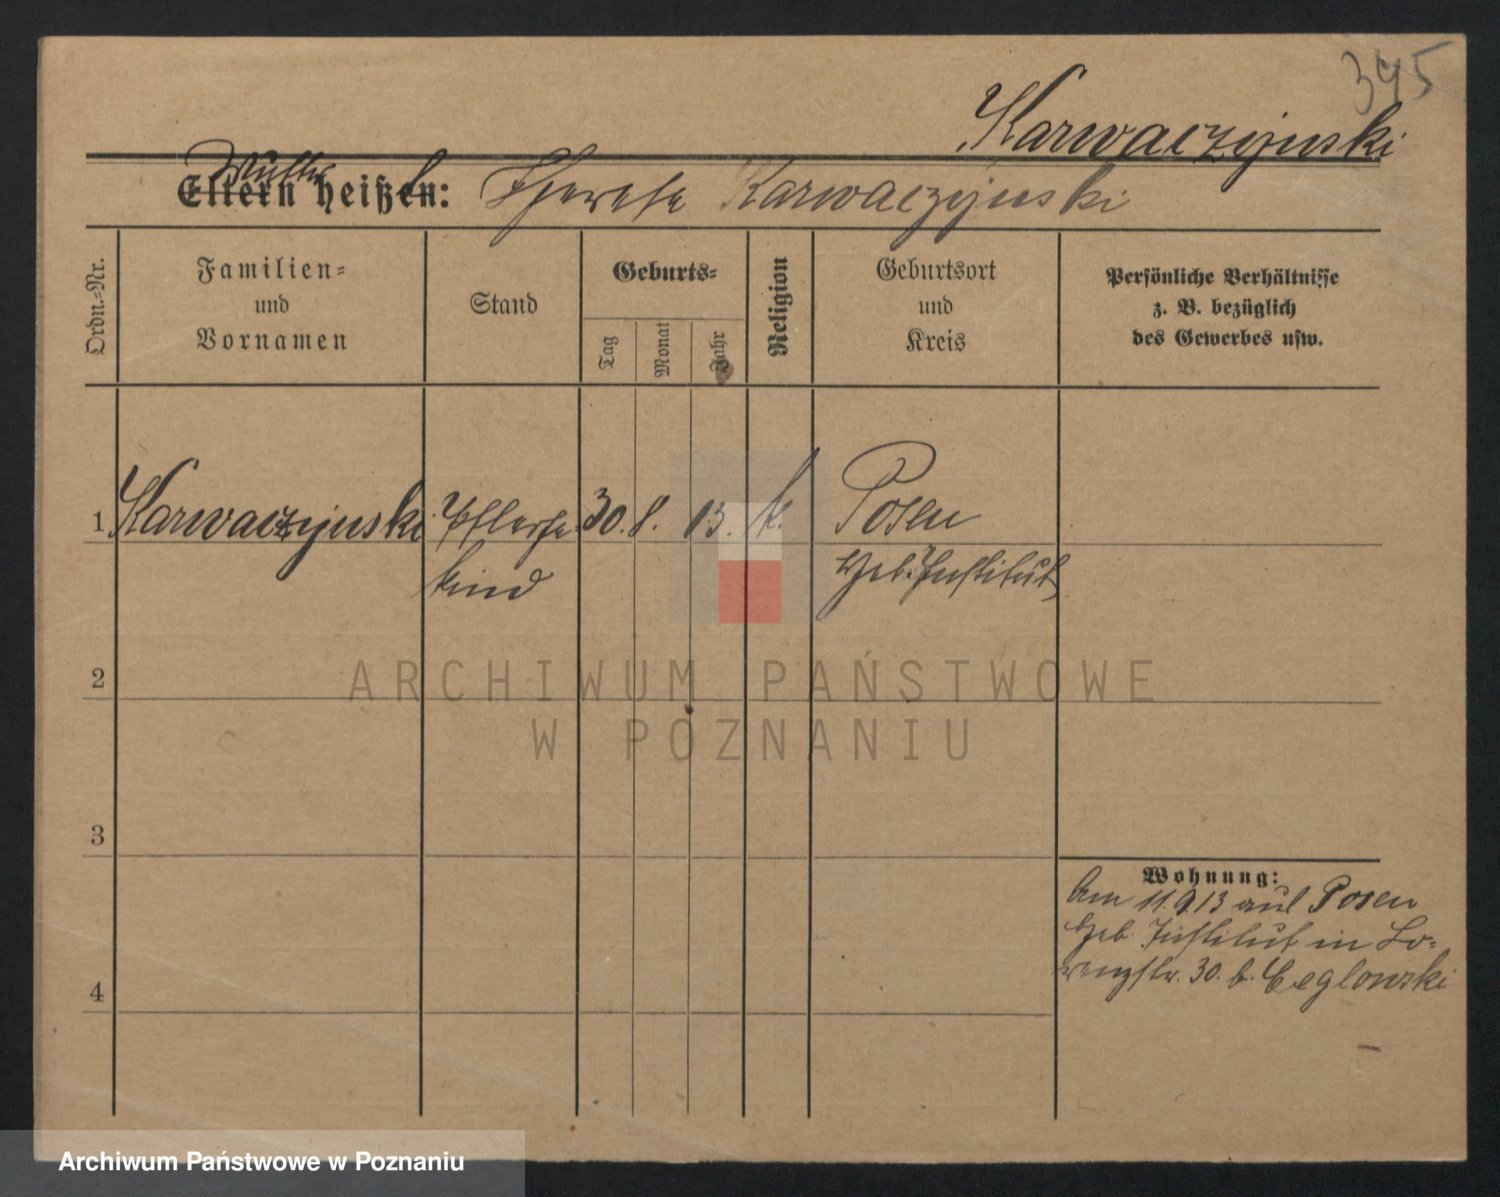 395
Karwaczynski
Mutter
Eltern heißen: Therese Karwaczynski
Ordn.-Nr.
Familien-
und
Vornamen
Stand
Geburts-
Tag
Monat
Jahr
Religion
Geburtsort
und
Kreis
Persönliche Verhältnisse
z. B. bezüglich
des Gewerbes usw.
1 Karwaczynski Pflege 30. 8. 13. k. Posen
kind Geb. Institut
2
3
4
Wohnung:
Am 11.9.13 aus Posen
Geb. Institut in Lo-
renzstr. 30. b. Ceglowski
ARCHIWUM PAŃSTWOWE
W POZNANIU
Archiwum Państwowe w Poznaniu